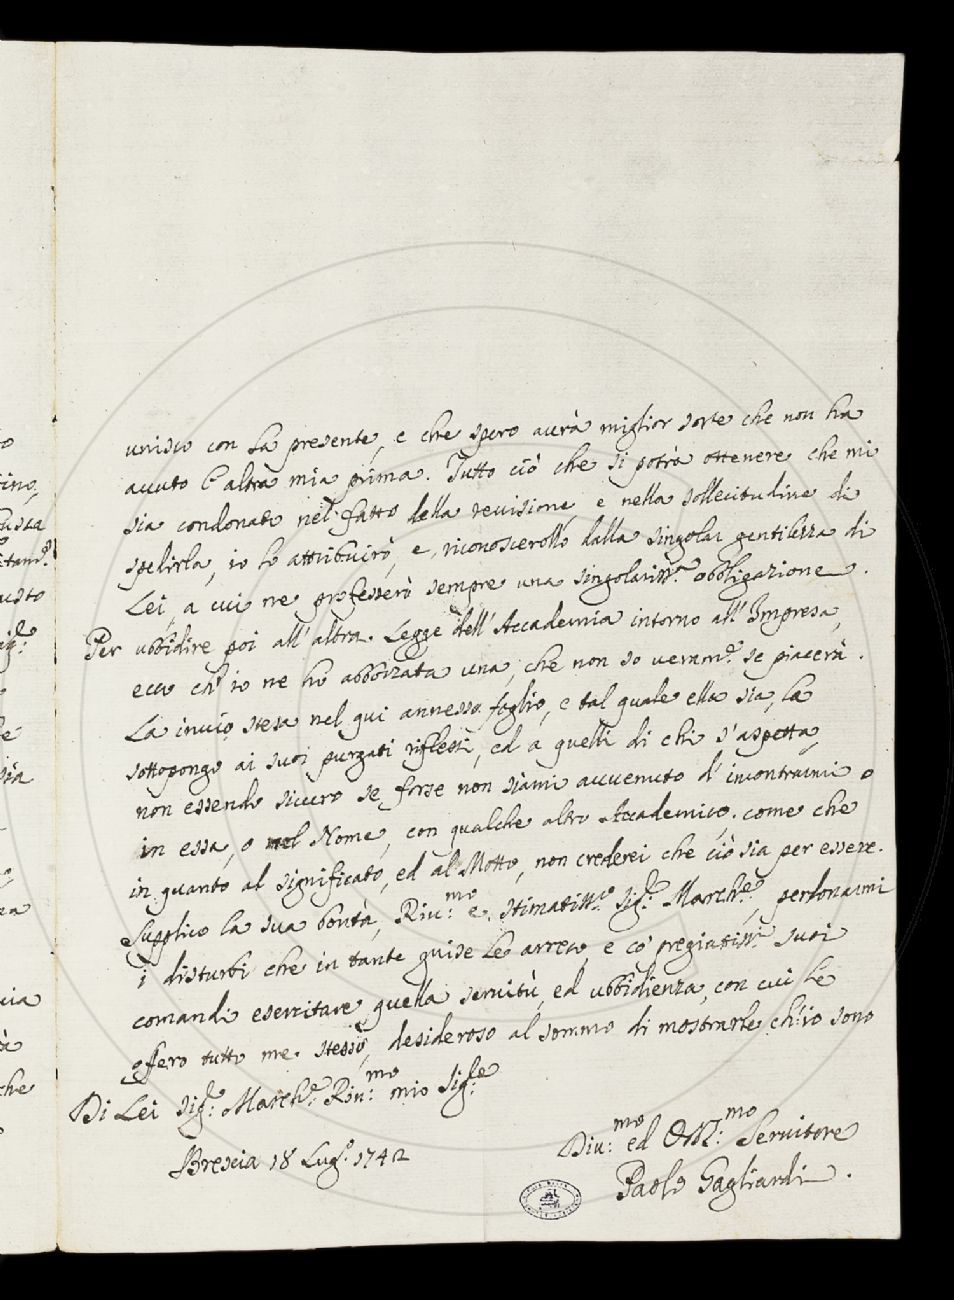 unisco con la presente, e che spero avrà miglior sorte che non ha
avuto l'altra mia prima. Tutto ciò che si potrà ottenere che mi
sia condonato nel fatto della revisione, e nella sollecitudine di
spedirla, io lo attribuirò, e riconoscerollo dalla singolar gentilezza di
Lei, a cui ne professerò sempre una singolariss.ª obbligazione.
Per ubbidire poi all'altra Legge dell'Accademia intorno all'Impresa,
ecco ch'io ne ho abbozzata una, che non so veram.e se piacerà.
La invio stesa nel qui annesso foglio, e tal quale ella sia, la
sottopongo ai suoi purgati riflessi, ed a quelli di chi s'aspetta,
non essendo sicuro se forse non siami avvenuto d'incontrarmi o
in essa, o nel Nome, con qualche altro Accademico, come che
in quanto al significato, ed al Motto, non crederei che ciò sia per essere.
Supplico la sua bontà, Riv:mo e stimatiss.o Sig.r March.e, perdonarmi
i disturbi che in tante guise Le arreco, e co' pregiatiss.i suoi
comandi esercitare quella servitù, ed ubbidienza, con cui Le
offero tutto me stesso, desideroso al sommo di mostrarle ch'io sono
Di Lei Sig.r March.e Riv:mo mio Sig.re
Brescia 18 Lug.o 1742
Div:mo ed Obl:mo Servitore
Paolo Gagliardi.